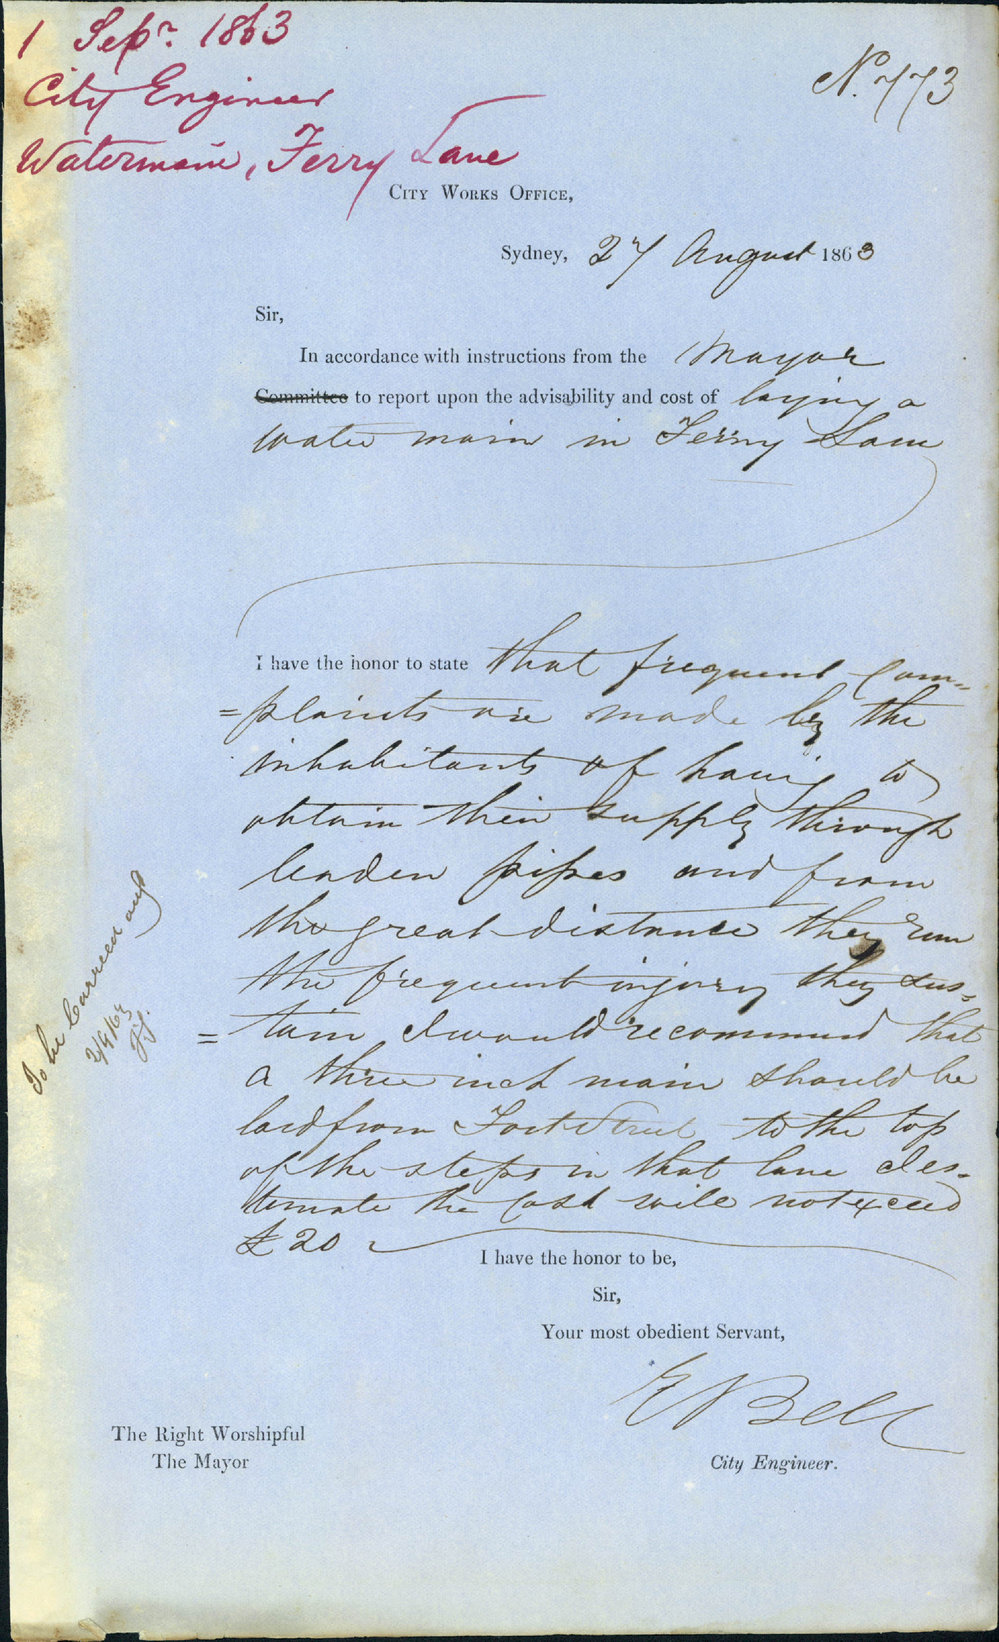 1 Sepr. 1863
City Engineer
Watermain, Ferry Lane
No. 773
CITY WORKS OFFICE,
Sydney, 27 August 1863
Sir,
In accordance with instructions from the Mayor
Committee to report upon the advisability and cost of laying a
water main in Ferry Lane
I have the honor to state that frequent com=
=plaints are made by the
inhabitants of having to
obtain their supply through
leaden pipes and from
the great distance they run
the frequent injury they sus=
=tain I would recommend that
a three inch main should be
laid from Fort Street to the top
of the steps in that lane I es=
timate the cost will not exceed
£20
I have the honor to be,
Sir,
Your most obedient Servant,
E Bell
City Engineer.
The Right Worshipful
The Mayor
To be carried out
2/9/63